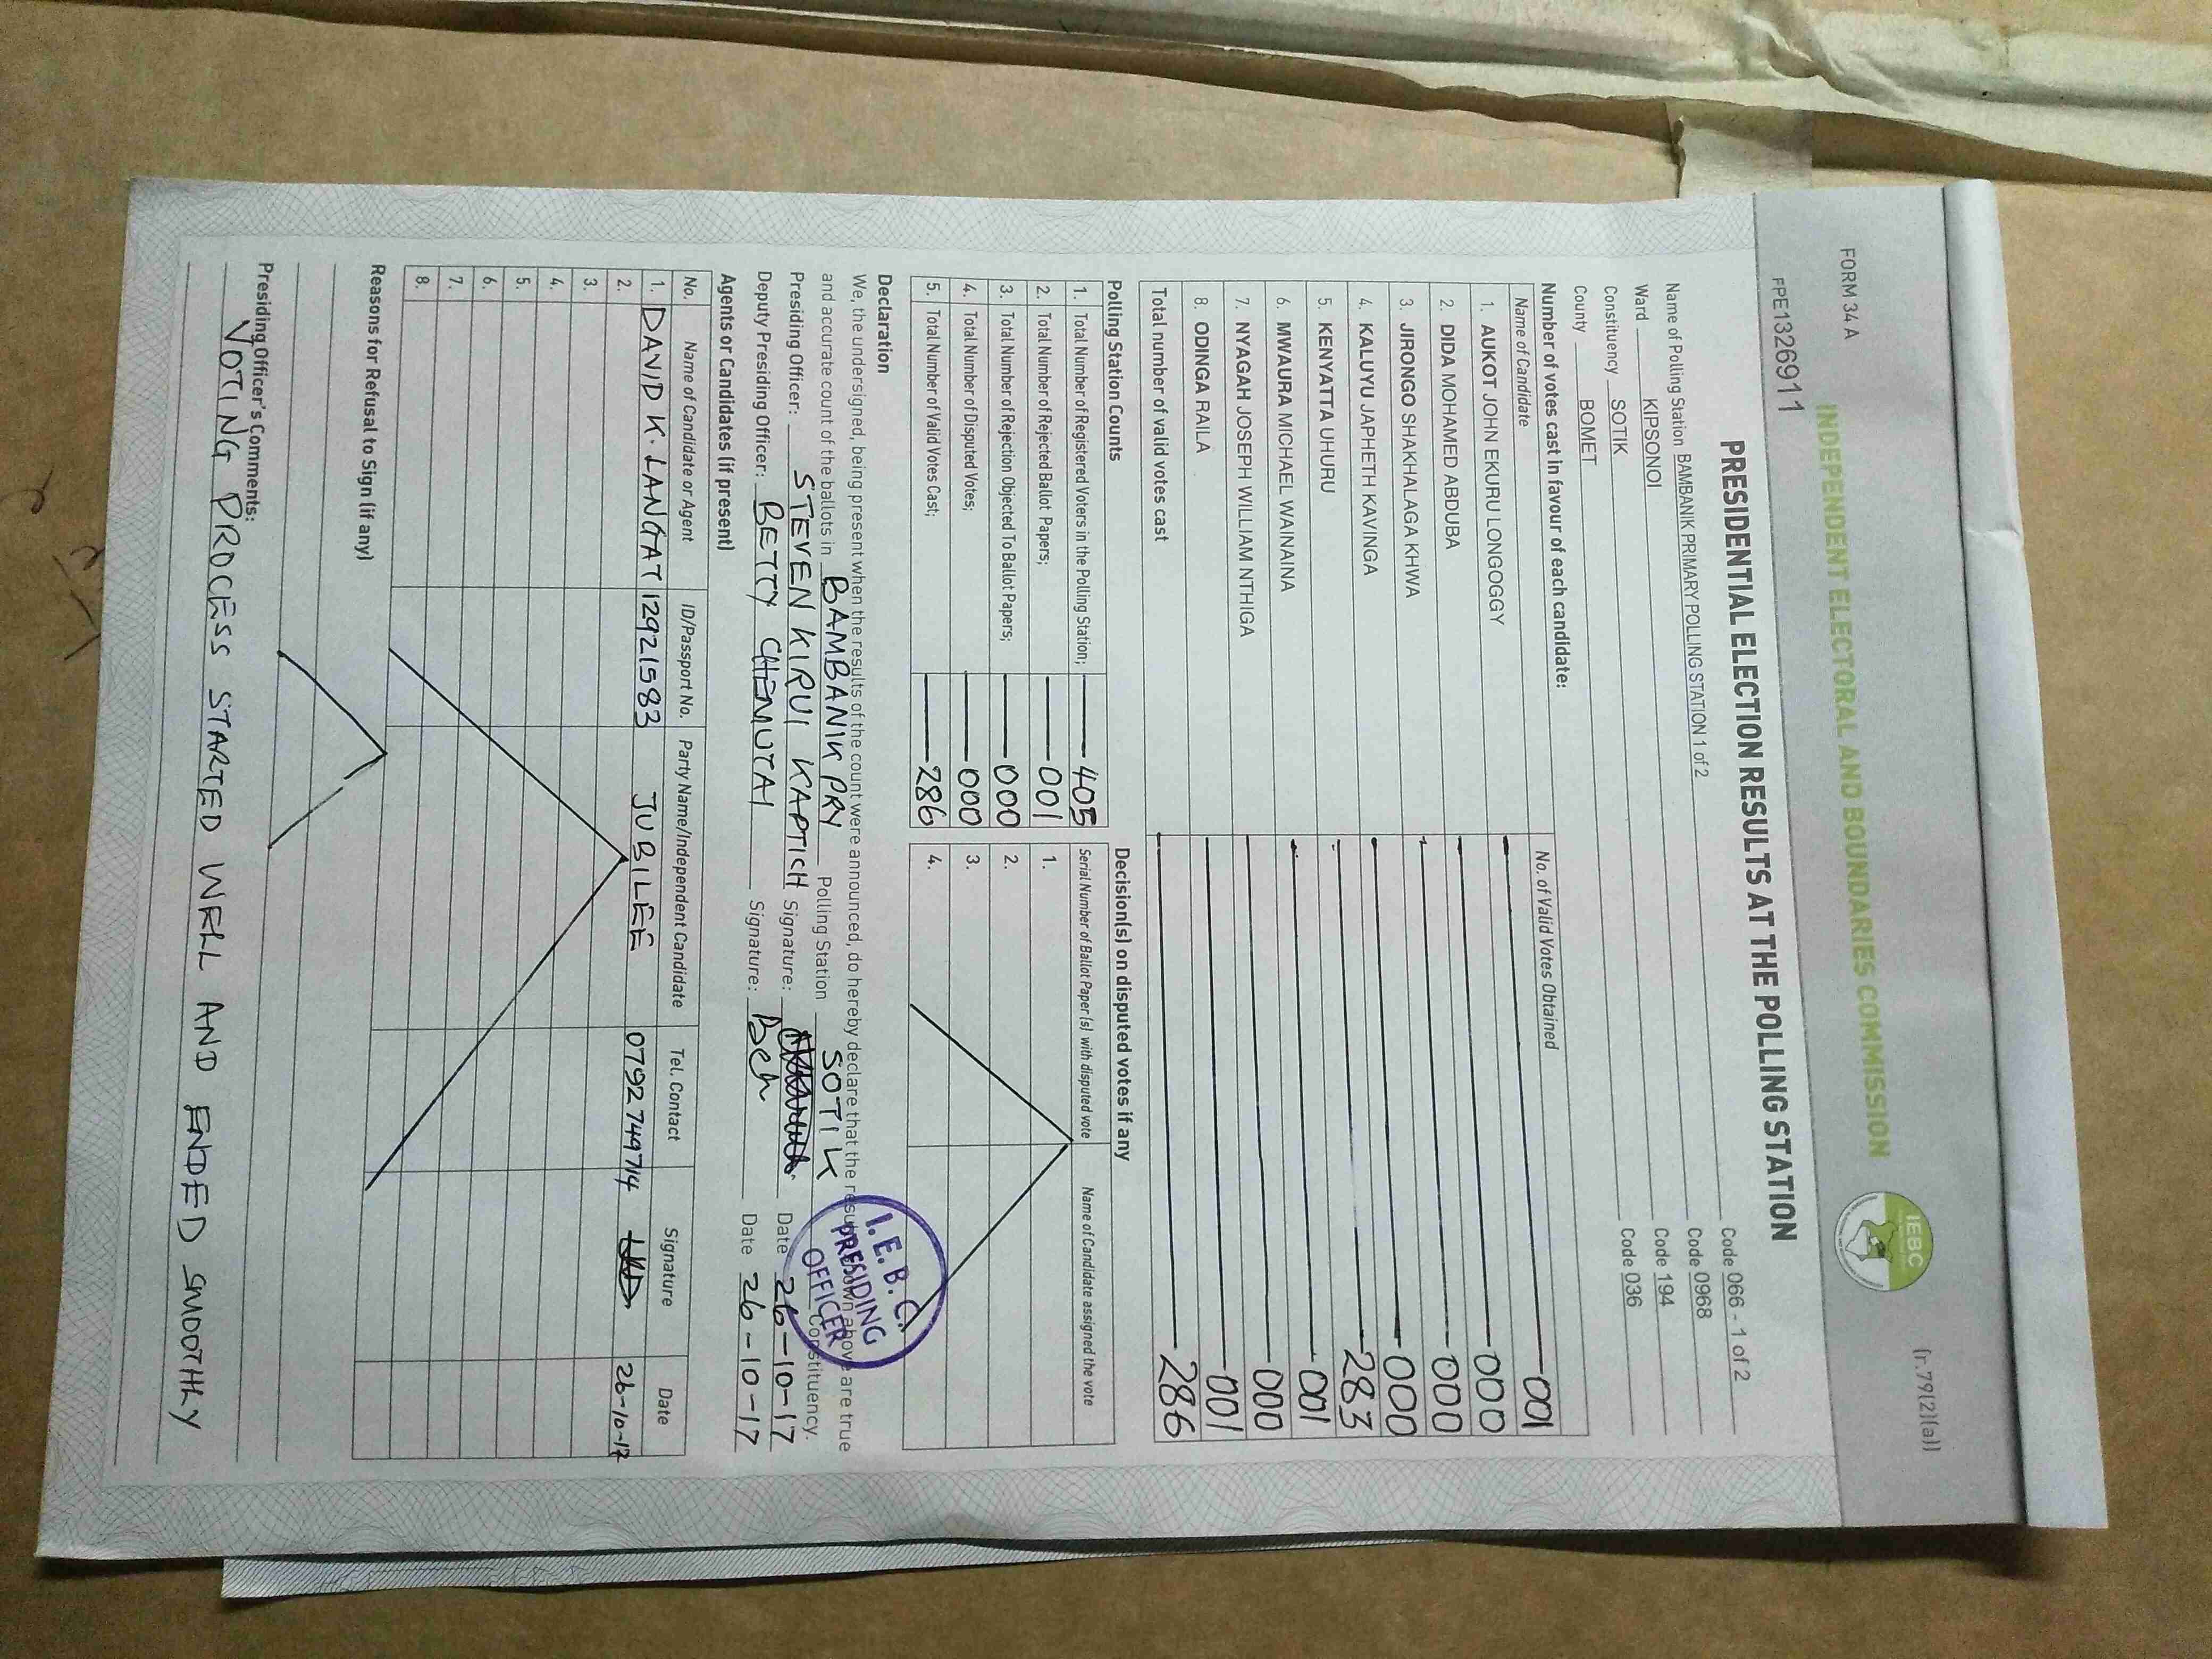 FORM 34 A
(r.79(2)(a))
INDEPENDENT ELECTORAL AND BOUNDARIES COMMISSION
IEBC
FPE1326911
PRESIDENTIAL ELECTION RESULTS AT THE POLLING STATION
Name of Polling Station BAMBANIK PRIMARY POLLING STATION 1 of 2 Code 066 - 1 of 2
Ward KIPSONOI Code 0968
Constituency SOTIK Code 194
County BOMET Code 036
Number of votes cast in favour of each candidate:
Name of Candidate No. of Valid Votes Obtained
1. AUKOT JOHN EKURU LONGOGGY 001
2. DIDA MOHAMED ABDUBA 000
3. JIRONGO SHAKHALAGA KHWA 000
4. KALUYU JAPHETH KAVINGA 000
5. KENYATTA UHURU 283
6. MWAURA MICHAEL WAINAINA 001
7. NYAGAH JOSEPH WILLIAM NTHIGA 000
8. ODINGA RAILA 001
Total number of valid votes cast 286
Polling Station Counts
1. Total Number of Registered Voters in the Polling Station; 405
2. Total Number of Rejected Ballot Papers; 001
3. Total Number of Rejection Objected To Ballot Papers; 000
4. Total Number of Disputed Votes; 000
5. Total Number of Valid Votes Cast; 286
Decision(s) on disputed votes if any
Serial Number of Ballot Paper (s) with disputed vote Name of Candidate assigned the vote
1.
2.
3.
4.
Declaration
We, the undersigned, being present when the results of the count were announced, do hereby declare that the results shown above are true
and accurate count of the ballots in BAMBANIK PRY Polling Station SOTIK Constituency.
Presiding Officer: STEVEN KIRUI KAPTICH Signature: Date 26-10-17
Deputy Presiding Officer: BETTY CHEMUTAI Signature: Bch Date 26-10-17
I.E.B.C.
PRESIDING
OFFICER
Agents or Candidates (if present)
No. Name of Candidate or Agent ID/Passport No. Party Name/Independent Candidate Tel. Contact Signature Date
1. DAVID K. LANGAT 12921583 JUBILEE 0792749714 26-10-17
2.
3.
4.
5.
6.
7.
8.
Reasons for Refusal to Sign (if any)
Presiding Officer's Comments:
VOTING PROCESS STARTED WELL AND ENDED SMOOTHLY